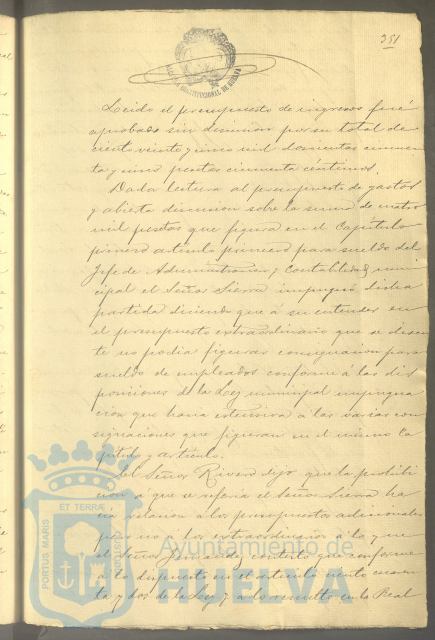 351
ALCALDIA CONSTITUCIONAL DE HUELVA
Leido el presupuesto de ingresos fué
aprobado sin discusion por su total de
ciento veinte y cinco mil doscientas cincuen
ta y cinco pesetas cincuenta céntimos.
Dada lectura al presupuesto de gastos
y abierta discusion sobre la suma de cuatro
mil pesetas que figura en el Capítulo
primero artículo primero para sueldo del
Jefe de Administracion y Contabilidad muni
cipal el Señor Sierra impugnó dicha
partida diciendo que á su entender en
el presupuesto extraordinario que se discu
te no podia figurar consignacion para
sueldo de empleados conforme á las dis
posiciones de la Ley municipal impugna
cion que hacia extensiva á las varias con
signaciones que figuran en el mismo Ca
pítulo y artículo.
El Señor Rivero dijo que la prohibi
cion á que se referia el Señor Sierra ha
cia relacion á los presupuestos adicionales
pero no á los extraordinarios á lo que
el Señor contestó conforme
a lo dispuesto en el artículo ciento cuaren
ta y dos de la Ley y a lo resuelto en la Real
PORTUS MARIS ET TERRAE CUSTODIA
Ayuntamiento de
HUELVA